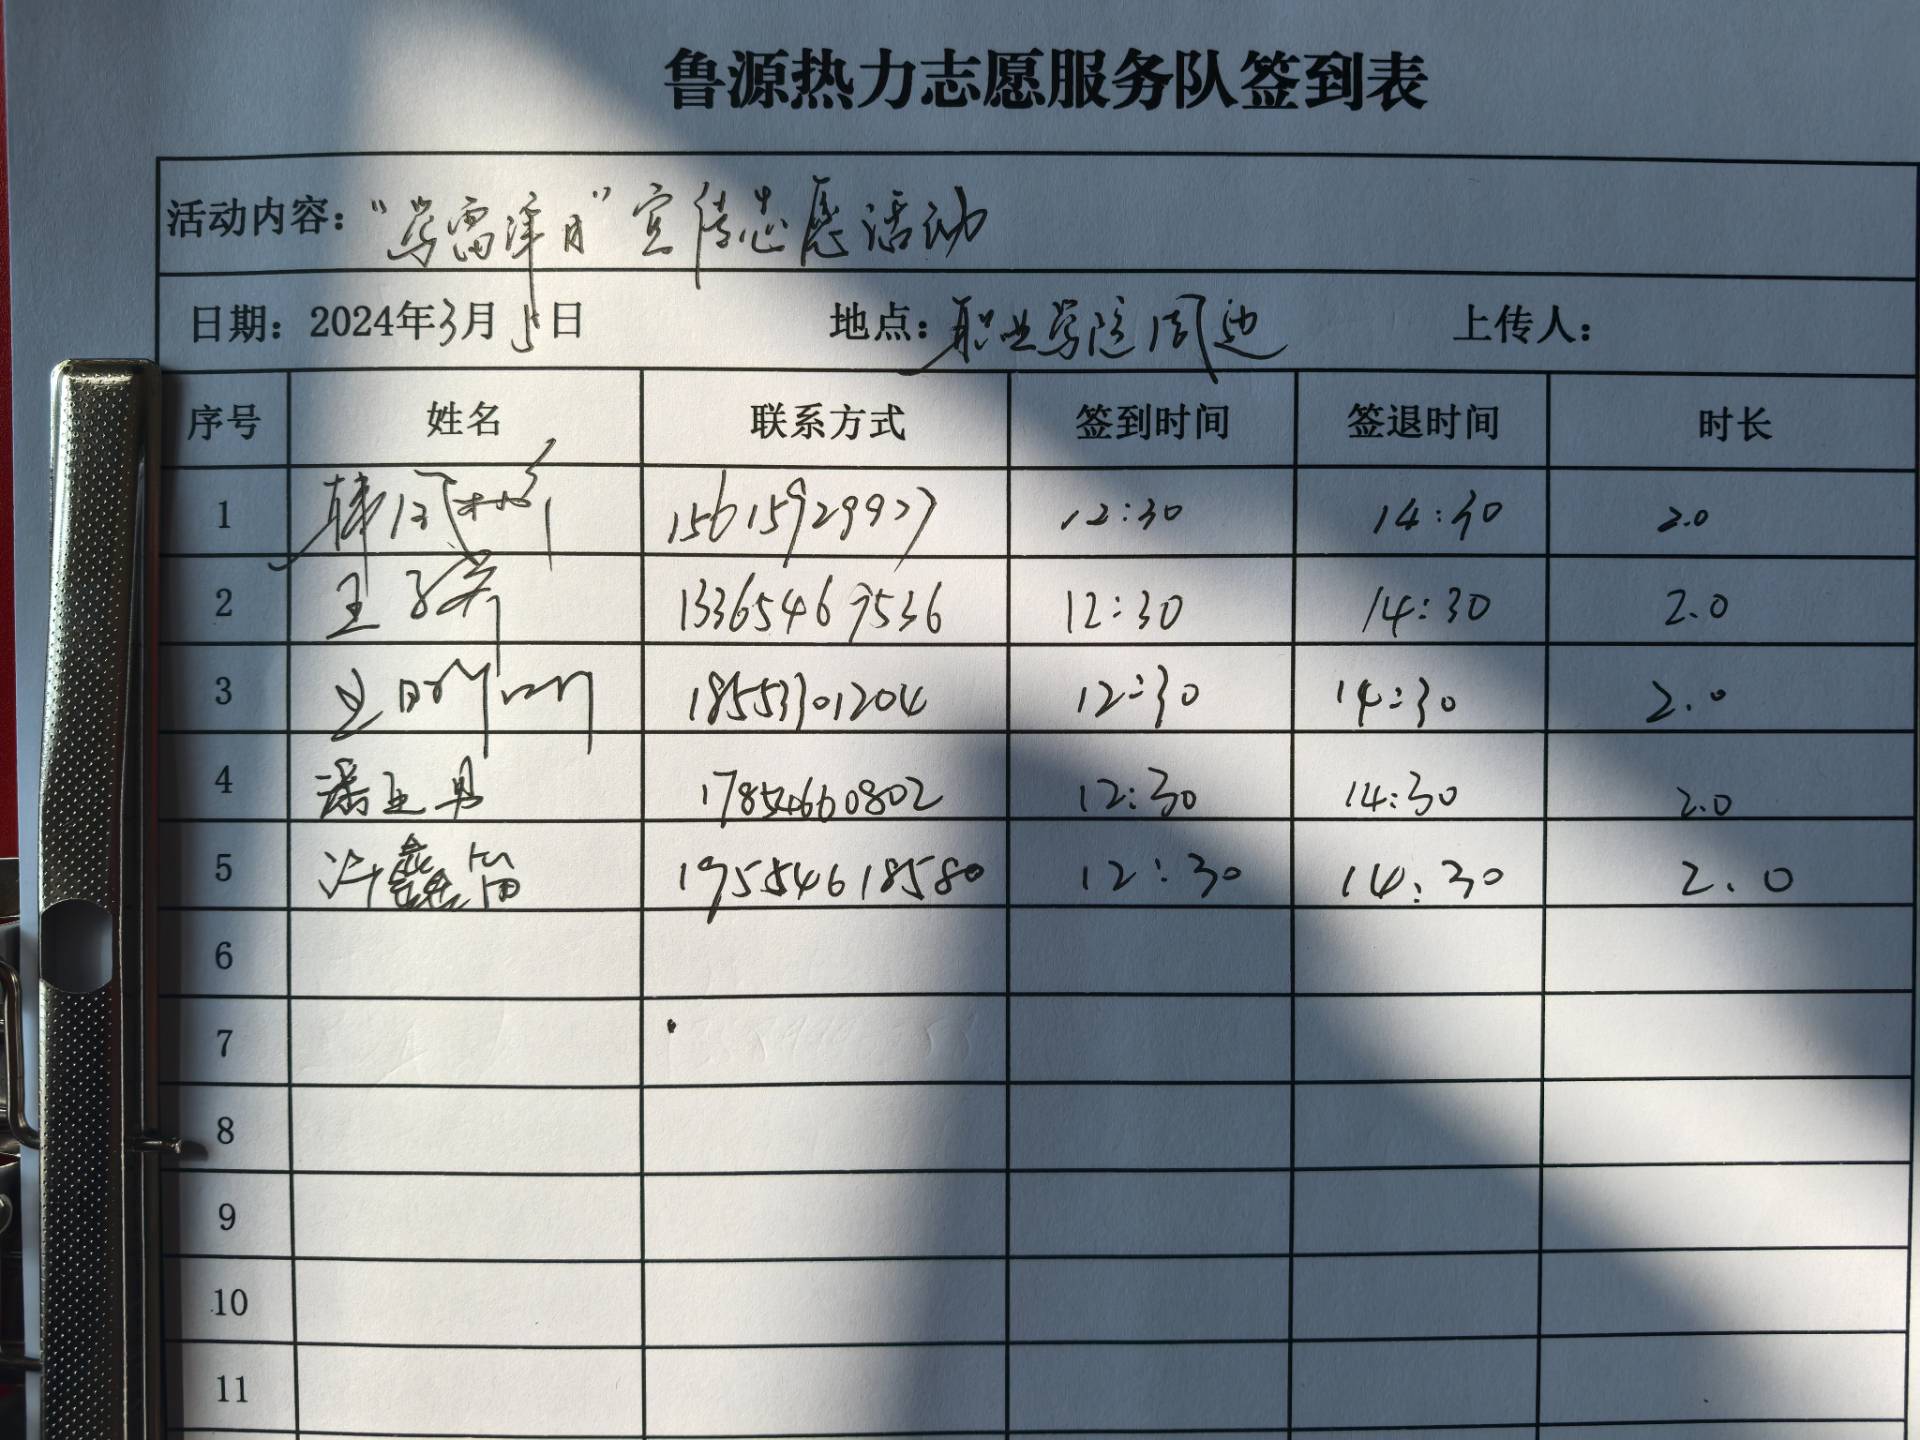 鲁源热力志愿服务队签到表
活动内容：“学雷锋月”宣传志愿活动
日期：2024年3月5日 地点：职业学院周边 上传人：
序号 姓名 联系方式 签到时间 签退时间 时长
1 韩 15615929927 12:30 14:30 2.0
2 王子 13365467536 12:30 14:30 2.0
3 18553301204 12:30 14:30 2.0
4 潘亚男 17854660802 12:30 14:30 2.0
5 许鑫 19554618580 12:30 14:30 2.0
6
7
8
9
10
11